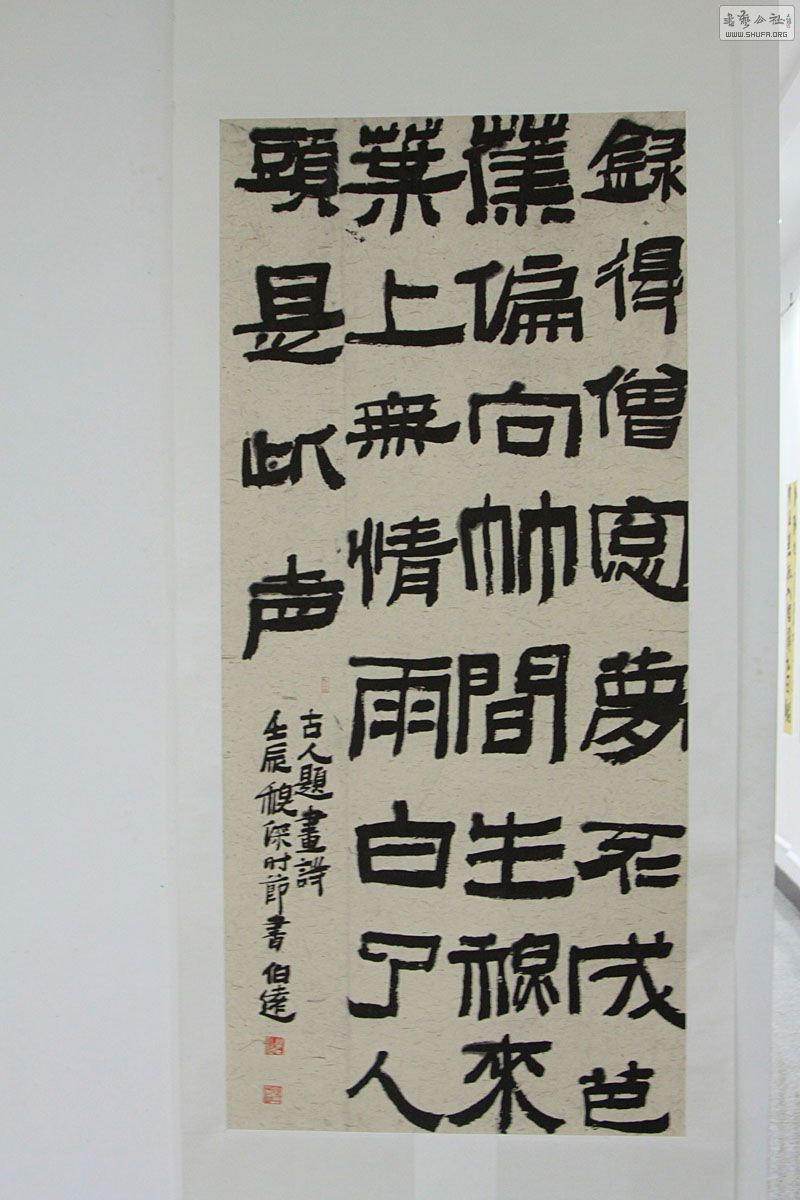 録得僧窓夢不成芭
蕉偏向竹間生穐來
葉上無情雨白了人
頭是此声
古人題畫詩
壬辰穐深时節書 伯達
書藝公社
WWW.SHUFA.ORG